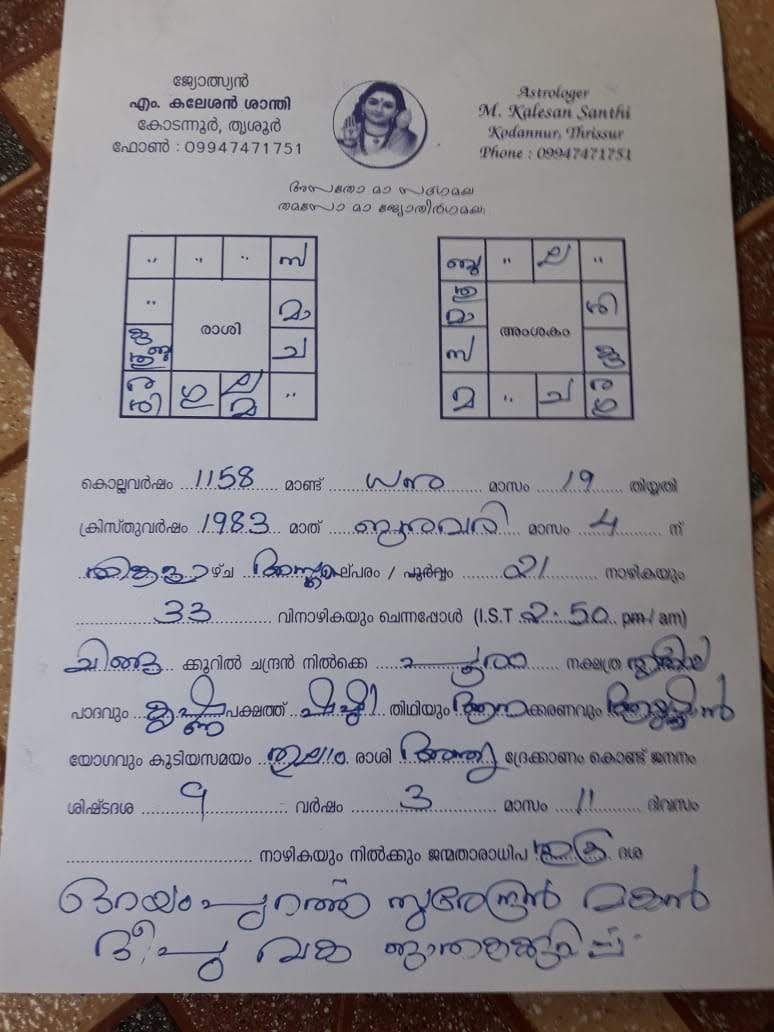 ജ്യോത്സ്യൻ
എം. കലേശൻ ശാന്തി
കോടന്നൂർ, തൃശൂർ
ഫോൺ : 09947471751
Astrologer
M. Kalesan Santhi
Kodannur, Thrissur
Phone : 09947471751
അസതോ മാ സദ്ഗമയ
തമസോ മാ ജ്യോതിർഗമയ
സ
മാ
രാശി
ച
ല
മ
ല
മാ
ശി
അംശകം
സ
മ ച
കൊല്ലവർഷം 1158 മാണ്ട് ധനു മാസം 19 തിയ്യതി
ക്രിസ്തുവർഷം 1983 മാത് ജനുവരി മാസം 4 ന്
ഴ്ച പരം / പൂർവ്വം 21 നാഴികയും
33 വിനാഴികയും ചെന്നപ്പോൾ (I.S.T 2:50 pm/ am)
ചിങ്ങ ക്കൂറിൽ ചന്ദ്രൻ നിൽക്കെ പൂരം നക്ഷത്ര
പാദവും കൃഷ്ണ പക്ഷത്ത് ഷഷ്ഠി തിഥിയും ആന ക്കരണവും ആയുഷ്മാൻ
യോഗവും കൂടിയസമയം രാശി അന്ത്യ ദ്രേക്കാണം കൊണ്ട് ജനനം
ശിഷ്ടദശ 9 വർഷം 3 മാസം 11 ദിവസം
നാഴികയും നിൽക്കും ജന്മതാരാധിപ ശുക്ര ദശ
സുരേന്ദ്രൻ മകൻ
ദീപു വക ജാതകക്കുറിപ്പ്